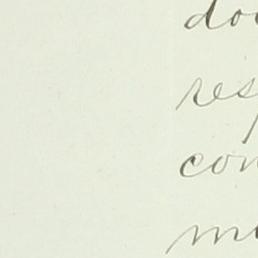 do
res
con
m